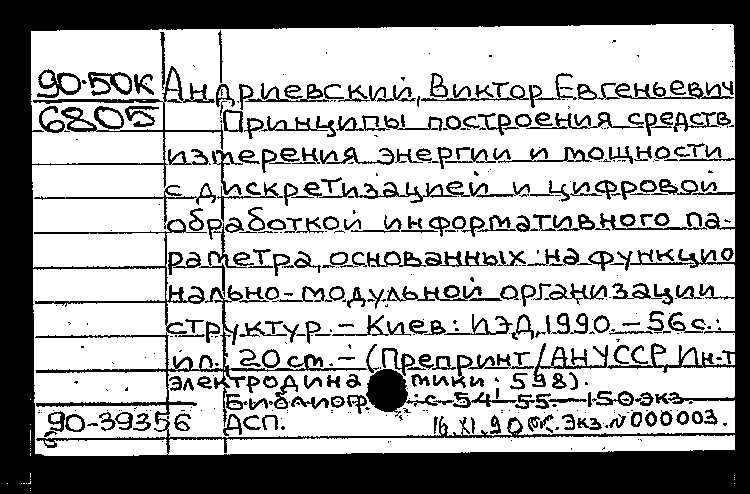 90-50К Андриевский, Виктор Евгеньевич
6805 Принципы построения средств
измерения энергии и мощности
с дискретизацией и цифровой
обработкой информативного па-
раметра, основанных на функцио
нально-модульной организации
структур. – Киев: ИЭД, 1990. – 56 с.:
ил.; 20 ст. – (Препринт / АН УССР, Ин-т
электродина мики; 598).
Библиогр : с. 54 55. 150 экз.
90-39356 ДСП. 16.XI.90 Экз. N 000003.
б